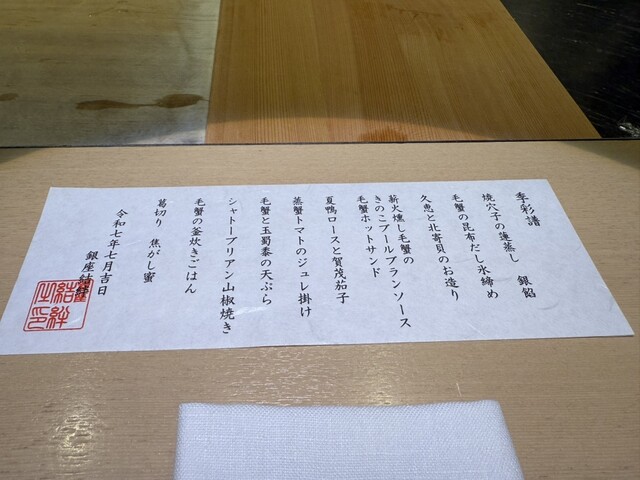 季彩譜
焼穴子の蓮蒸し 銀餡
毛蟹の昆布だし氷締め
久恵と北寄貝のお造り
薪火燻し毛蟹の
きのこブールブランソース
毛蟹ホットサンド
夏鴨ロースと賀茂茄子
蒸蟹トマトのジュレ掛け
毛蟹と玉蜀黍の天ぷら
シャトーブリアン山椒焼き
毛蟹の釜炊きごはん
葛切り 焦がし蜜
令和七年七月吉日
銀座結絆
結絆之印